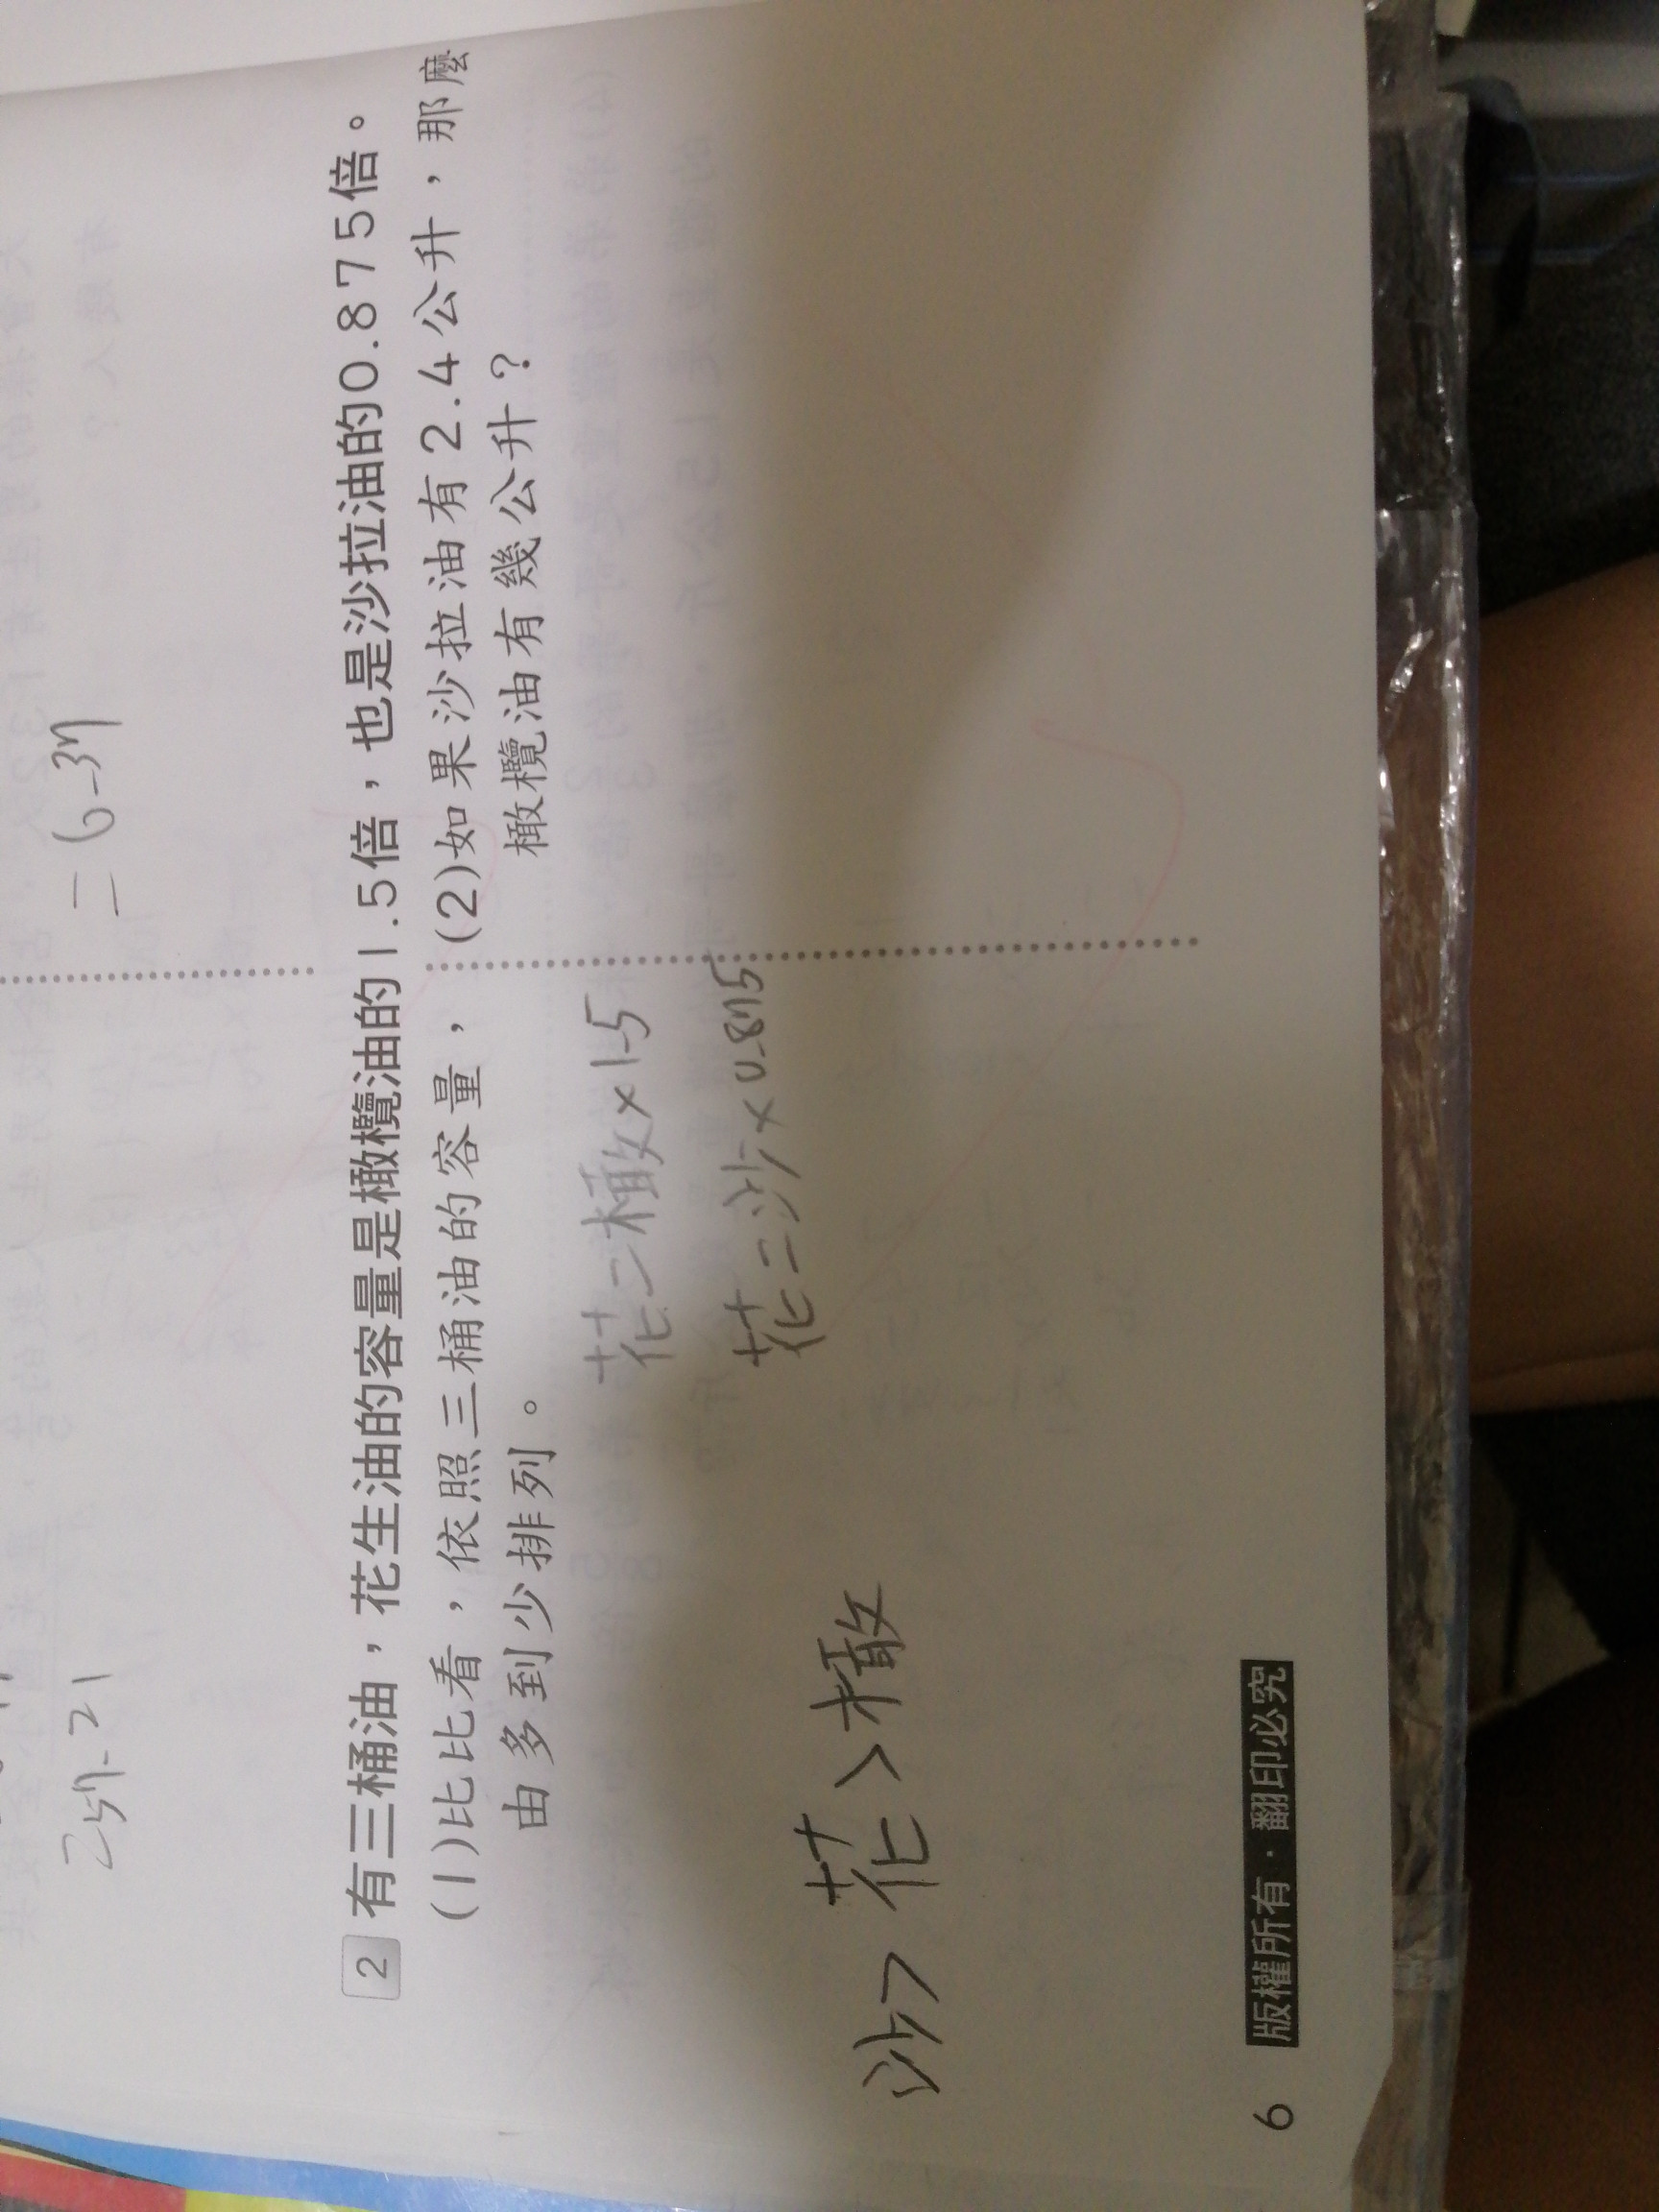 = 6.37
257.21
2 有三桶油，花生油的容量是橄欖油的1.5倍，也是沙拉油的0.875倍。
(1)比比看，依照三桶油的容量，
由多到少排列。
花=橄×1.5
花=沙×0.875
沙>花>橄
(2)如果沙拉油有2.4公升，那麼
橄欖油有幾公升？
6 版權所有·翻印必究